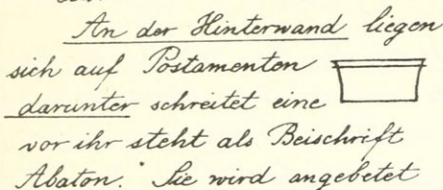 An der Hinterwand liegen
sich auf Postamenten
darunter schreitet eine
vor ihr steht als Beischrift
Abaton." Sie wird angebetet